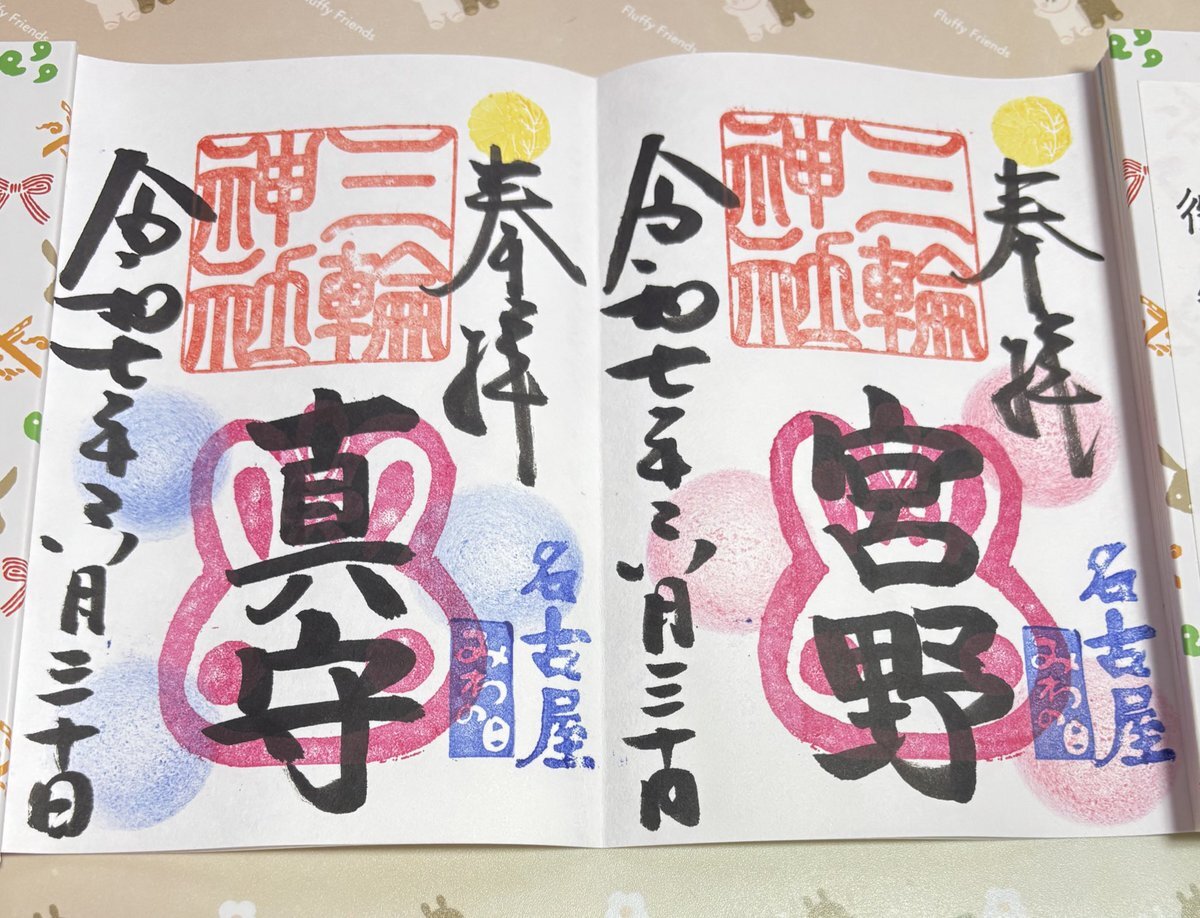 Fluffy Friends
Fluffy Friends
Fluffy Friends
奉拝
三輪神社
宮野
名古屋
みわの日
令和七年六月三十日
奉拝
三輪神社
真守
名古屋
みわの日
令和七年六月三十日